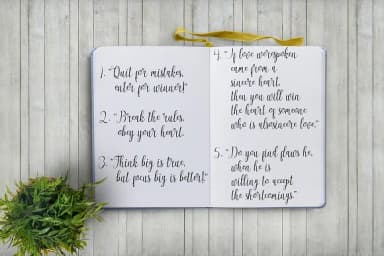 1. "Quit for mistakes,
enter for winner!"
2. "Break the rules,
obey your heart.
3. "Think big is true,
but focus big is better!"
4. "If love were spoken
came from a
sincere heart,
then you will win
the heart of someone
who is also sincere love."
5. "Do you find flaws he,
when he is
willing to accept
the shortcomings."